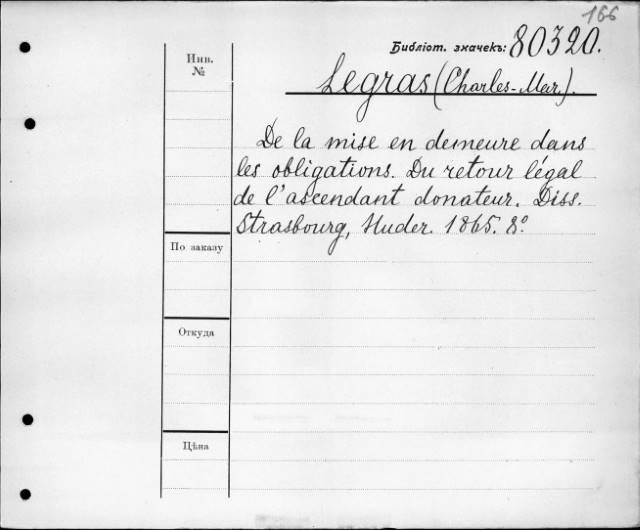 166
Библіот. значекъ: 80320.
Инв.
№
Legras (Charles-Mar.).
De la mise en demeure dans
les obligations. Du retour légal
de l'ascendant donateur. Diss.
Strasbourg, Huder. 1865. 8º.
По заказу
Откуда
Цѣна